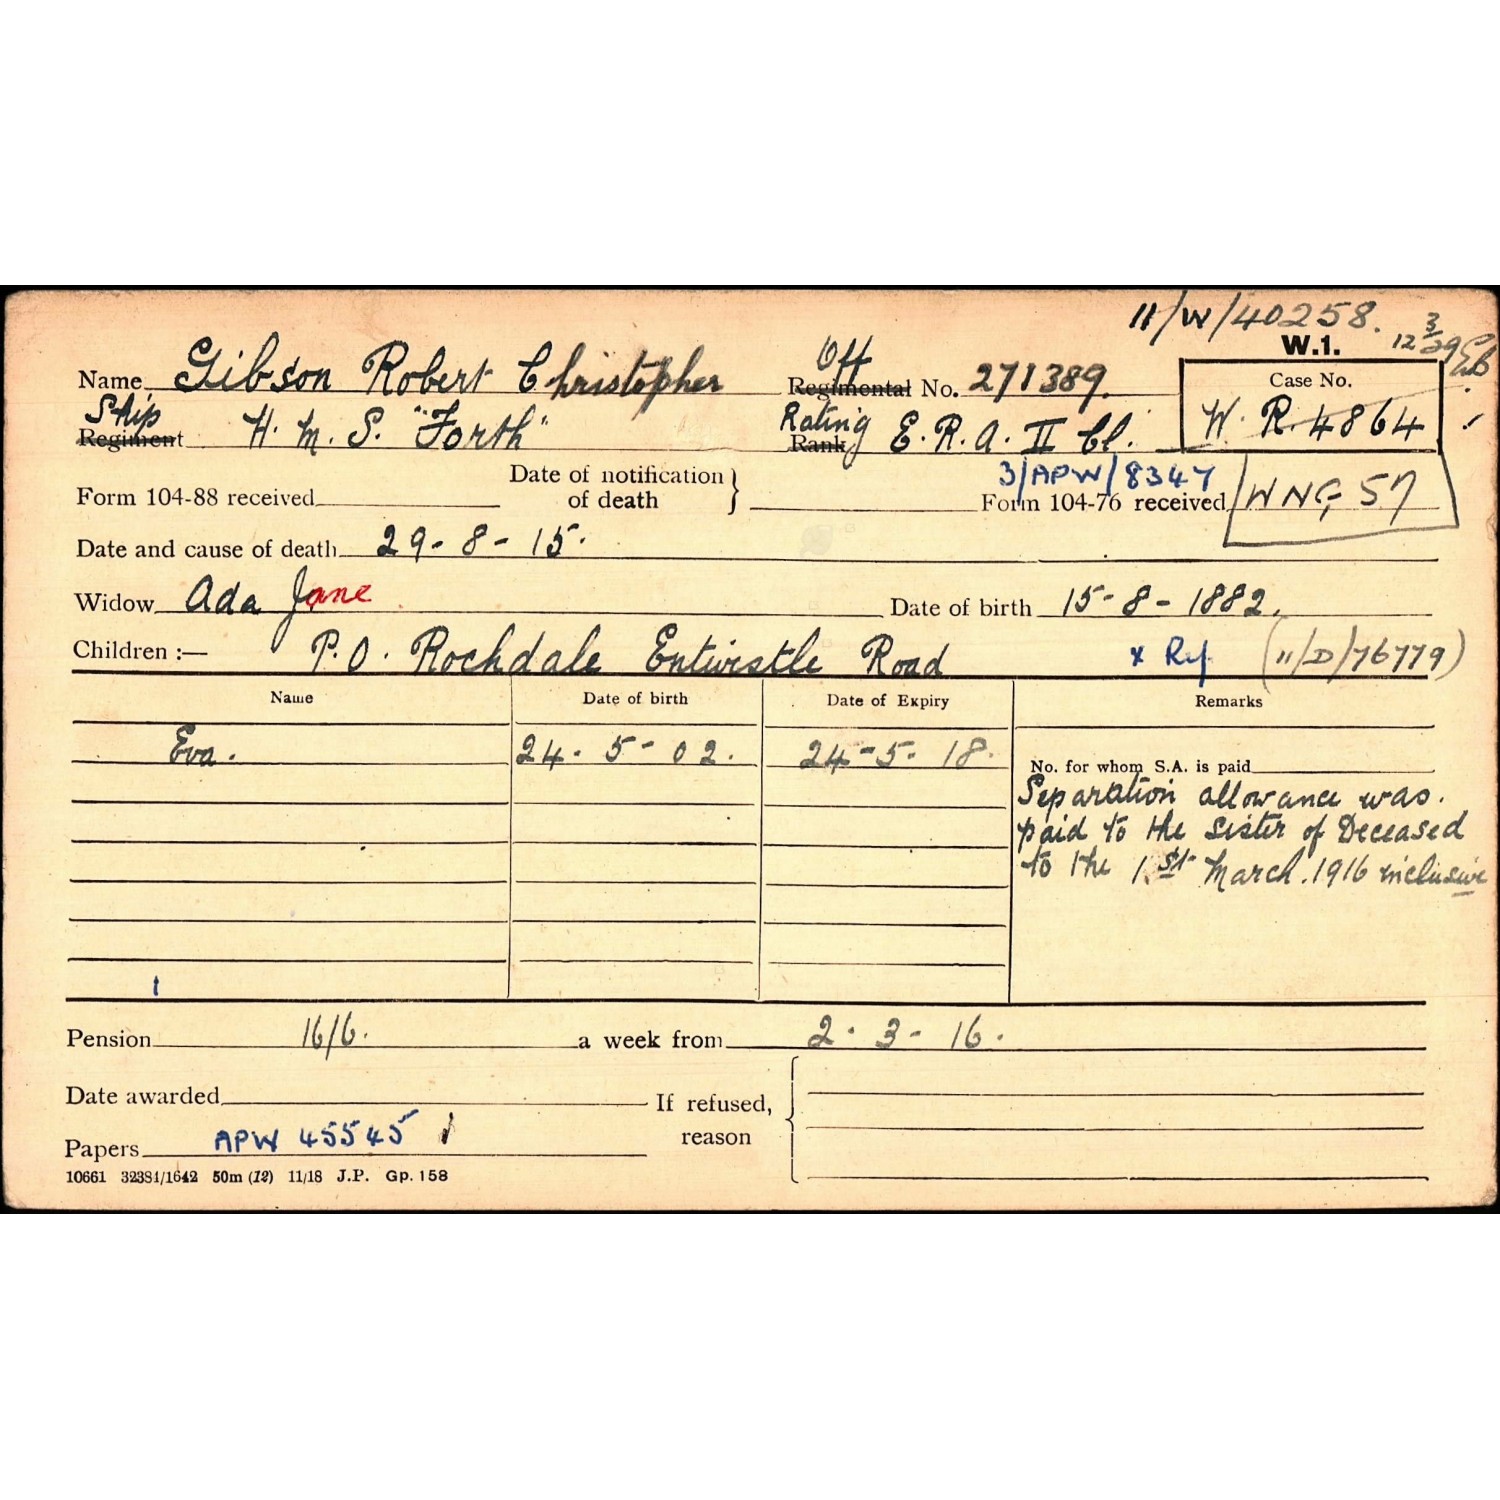 11/W/40258.
W.1. 12 3/29
Name Gibson Robert Christopher Off Regimental No. 271389.
Case No.
W. R. 4864
Ship Regiment H. M. S. "Forth" Rating Rank E. R. A. II Cl.
Form 104-88 received Date of notification of death } 3/APW/8347 Form 104-76 received WNG 57
Date and cause of death 29-8-15.
Widow Ada Jane Date of birth 15-8-1882.
Children :— P.O. Rochdale Entwistle Road x Ref (11/D/76779)
Name Date of birth Date of Expiry Remarks
Eva. 24. 5-02. 24-5-18.
No. for whom S.A. is paid
Separation allowance was.
paid to the sister of Deceased
to the 1st March.1916 inclusive
Pension 16/6. a week from 2.3-16.
Date awarded If refused, reason
Papers APW 45545
10661 32381/1642 50m (12) 11/18 J.P. Gp.158